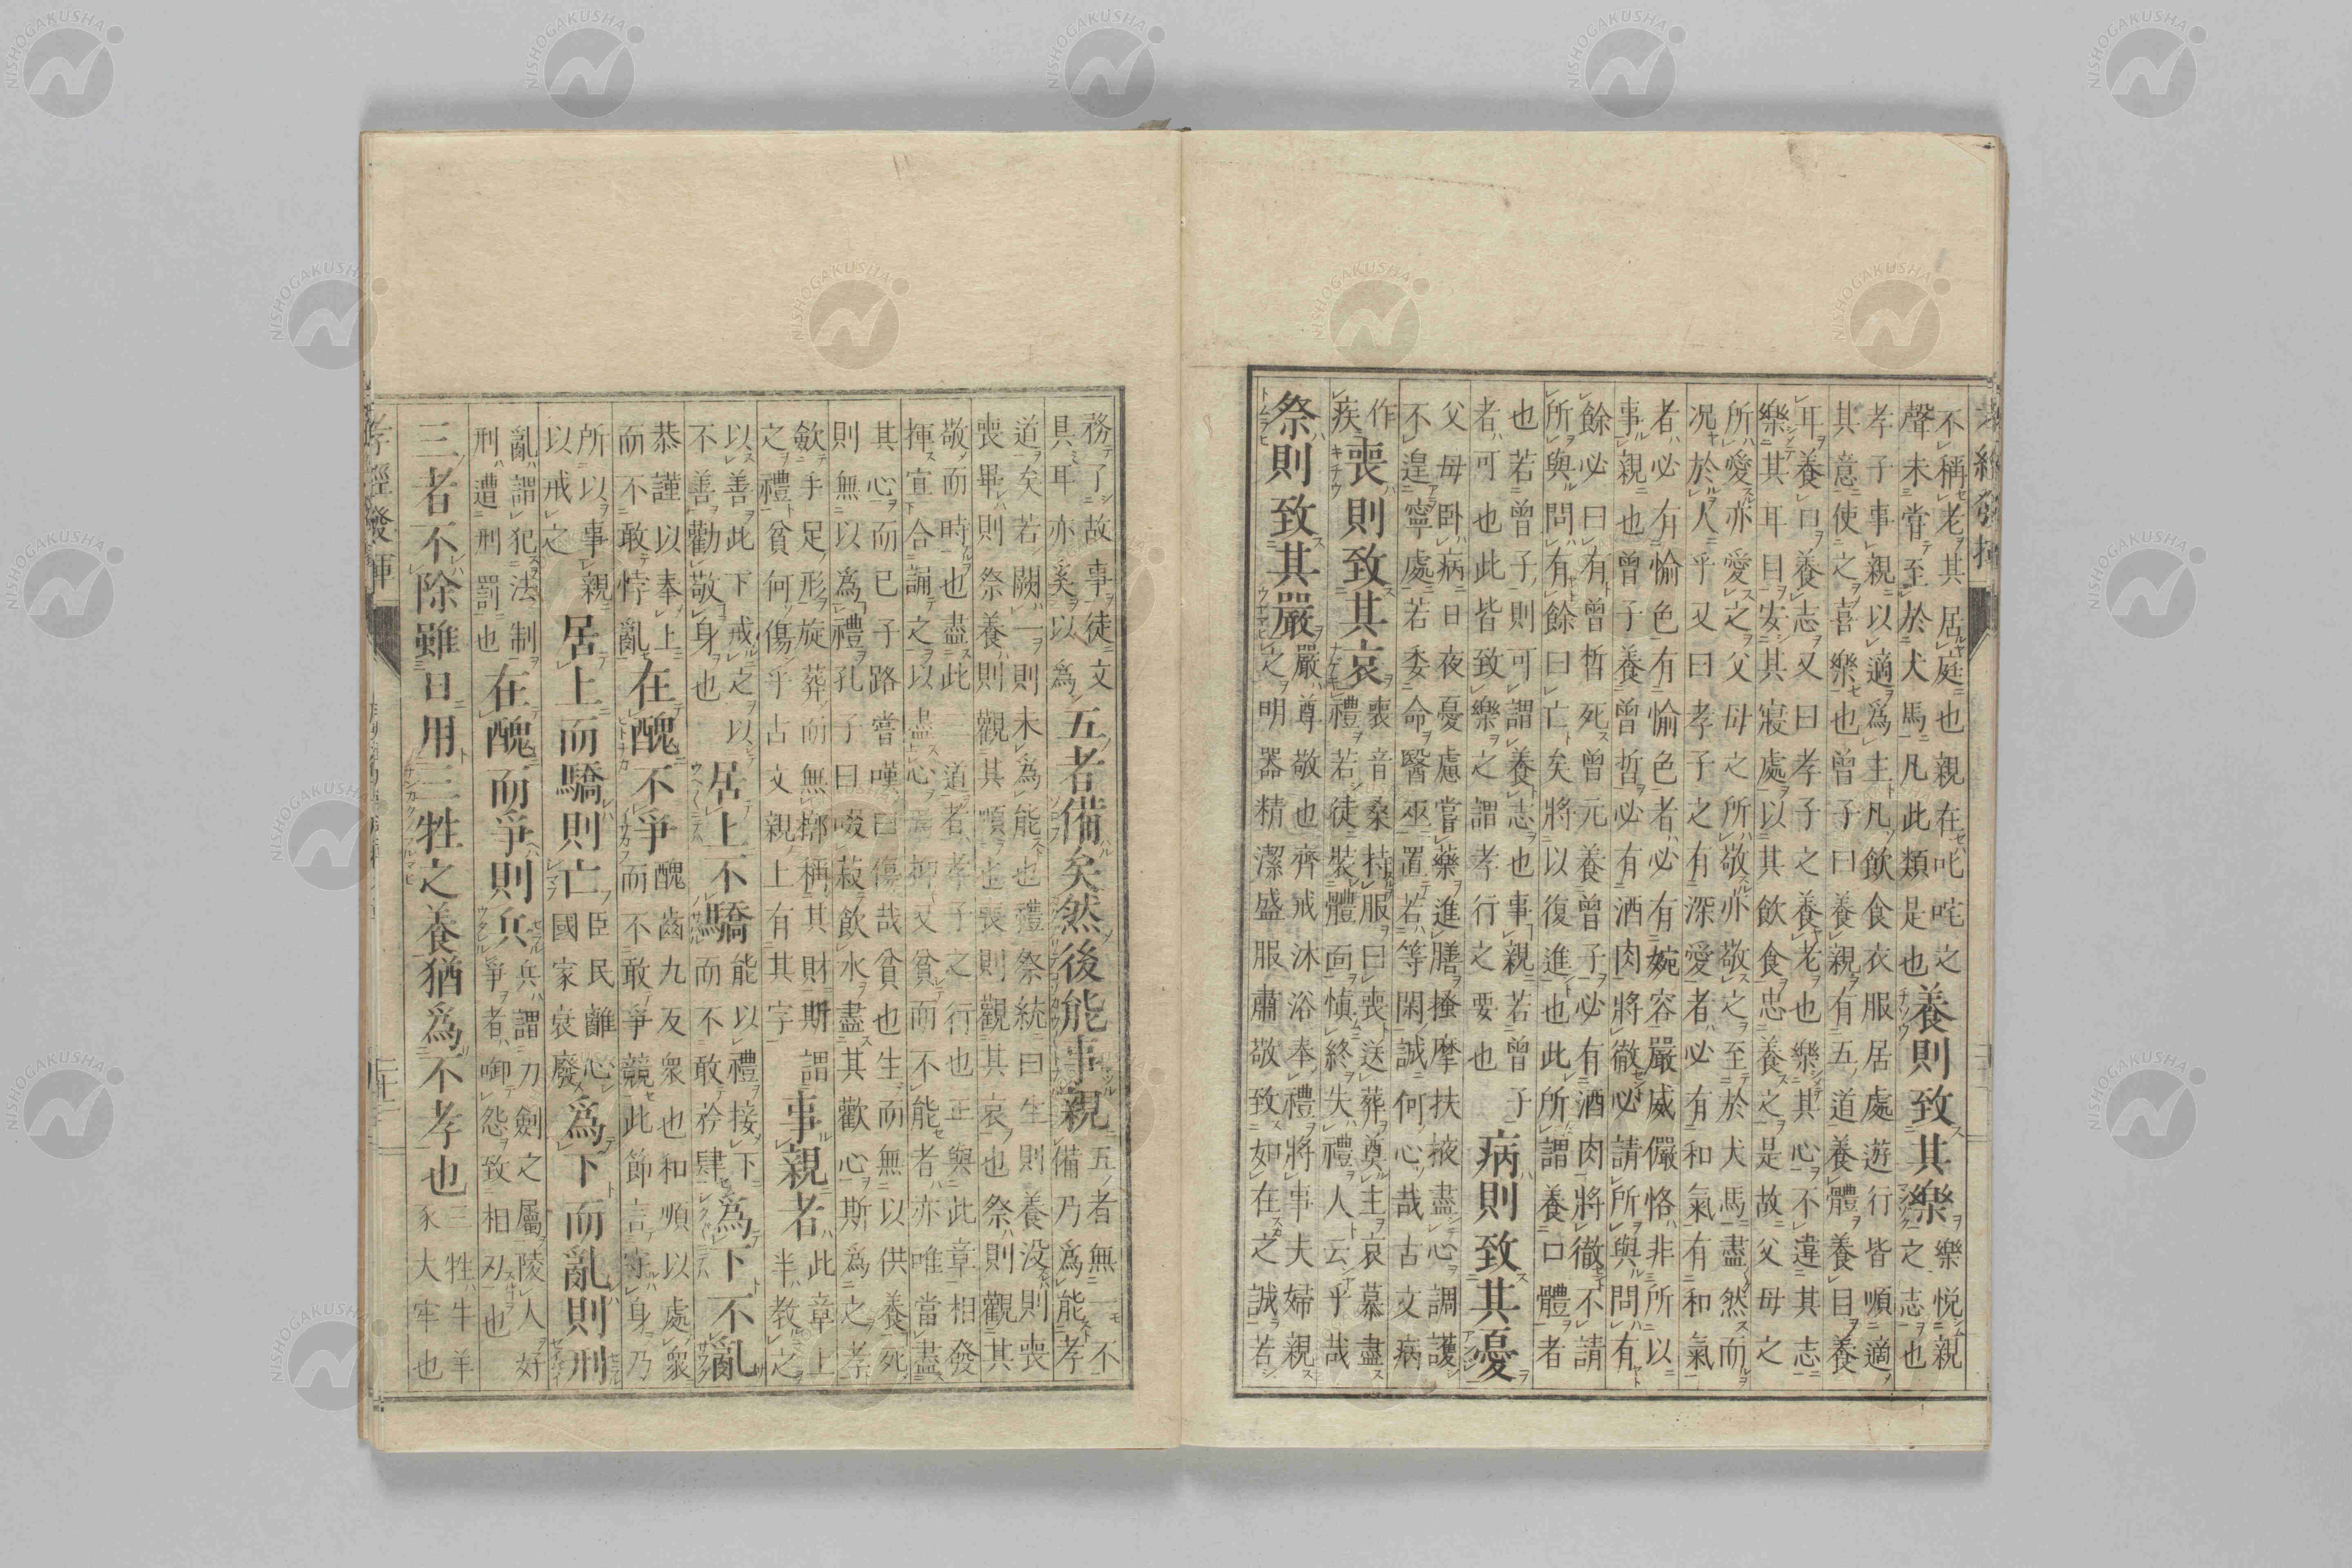 不稱老其居庭也親在叱咤之
聲未嘗至於犬馬凡此類是也
養則致其樂
樂悅親
之志也
孝子事親以適爲主凡飲食衣服居處遊行皆順適
其意使之喜樂也曾子曰養親有五道養體養目養
耳養口養志又曰孝子之養老也樂其心不違其志
樂其耳目安其寢處以其飲食忠養之是故父母之
所愛亦愛之父母之所敬亦敬之至於犬馬盡然而
况於人乎又曰孝子之有深愛者必有和氣有和氣
者必有愉色有愉色者必有婉容嚴威儼恪非所以
事親也曾子養曾晳必有酒肉將徹必請所與問有
餘必曰有曾晳死曾元養曾子必有酒肉將徹不請
所與問有餘曰亡矣將以復進也此所謂養口體者
也若曾子則可謂養志也事親若曾子
者可也此皆致樂之謂孝行之要也
病則致其憂
父母臥病日夜憂慮嘗藥進膳搔摩扶掖盡心調護
不遑寧處若委命醫巫置若等閑誠何心哉古文病
作
疾
喪則致其哀
喪音桑持服曰喪送葬奠主哀慕盡
禮若徒裝體面愼終失禮人云乎哉
祭則致其嚴
嚴尊敬也齊戒沐浴奉禮將事夫婦親
之明器精潔盛服肅敬致如在之誠若
務了故事徒文
具耳亦奚以爲
五者備矣然後能事親
五者無一不
備乃爲能孝
道矣若闕一則未爲能也禮祭統曰生則養没則喪
喪畢則祭養則觀其順也喪則觀其哀也祭則觀其
敬而時也盡此三道者孝子之行也正與此章相發
揮宜合誦之以盡心焉抑又貧而不能者亦唯當盡
其心而已子路嘗嘆曰傷哉貧也生而無以供養死
則無以爲禮孔子曰啜菽飲水盡其歡心斯爲之孝
歛手足形旋葬而無槨稱其財斯謂
之禮貧何傷乎古文親上有其字
事親者
此章上
半教之
以善此下戒之以
不善勸敬身也
居上不驕
能以禮接下
而不敢矜肆
爲下不亂
恭謹以奉上
而不敢悖亂
在醜不爭
醜齒九反衆也和順以處衆
而不敢爭競此節言守身乃
所以事親
以戒之
居上而驕則亡
臣民離心
國家衰廢
爲下而亂則刑
亂謂犯法制
刑遭刑罰也
在醜而爭則兵
兵謂刀劍之屬陵人好
爭者御怨致相刃也
三者不除雖日用三牲之養猶爲不孝也
三牲牛羊
豕大牢也
孝經發揮